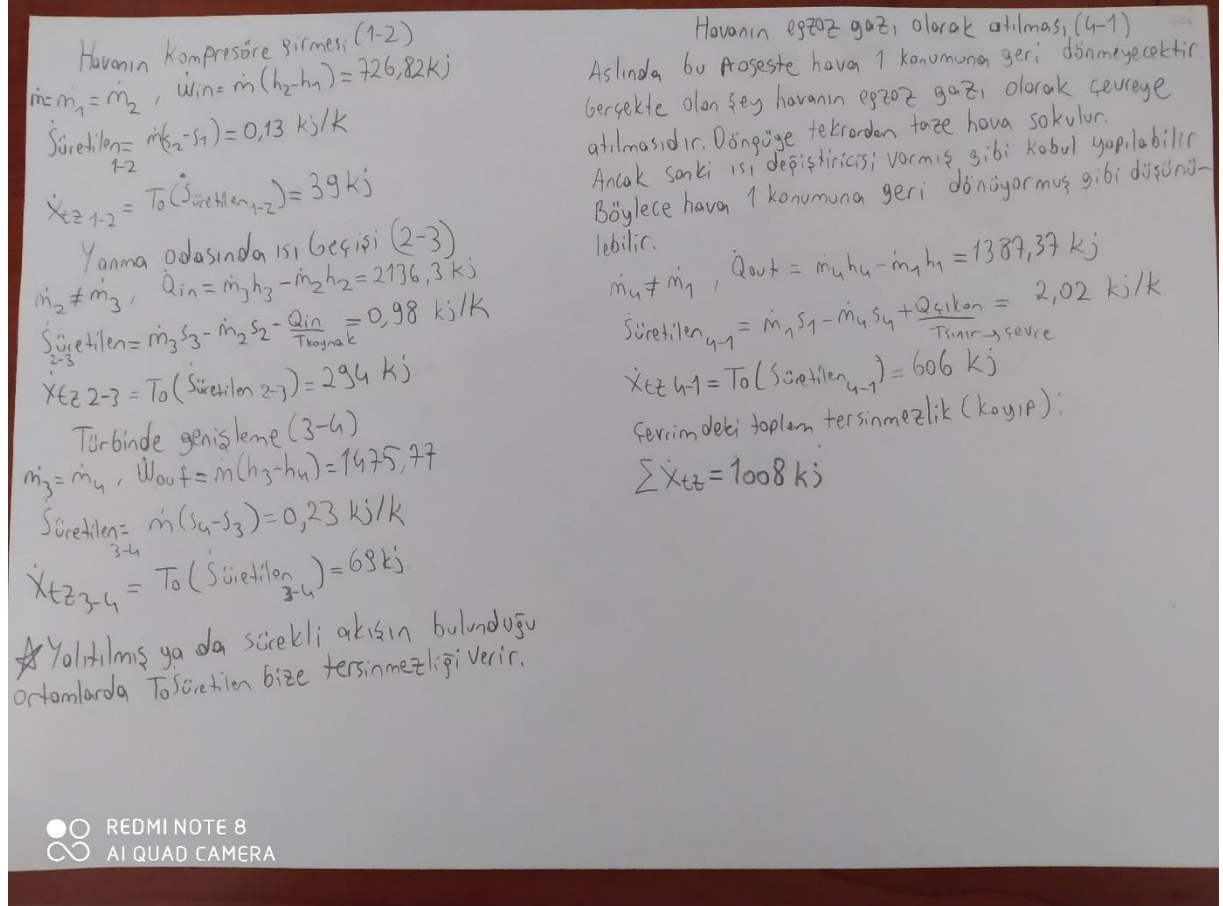 Havanın Kompresöre girmesi (1-2)
ṁ=ṁ1=ṁ2, Ẇin=ṁ(h2-h1)=726,82kj
Ṡüretilen= ṁ(s2-s1)=0,13 kj/K
1-2
Ẋtz 1-2 = To(Ṡüretilen1-2)=39kj
Yanma odasında ısı Geçişi (2-3)
ṁ2≠ṁ3, Q̇in=ṁ3h3-ṁ2h2=2136,3kj
Ṡüretilen=ṁ3s3-ṁ2s2-Qin/Tkaynak=0,98 kj/K
2-3
Ẋtz 2-3=To(Ṡüretilen 2-3)=294 kj
Türbinde genişleme (3-4)
ṁ3=ṁ4, Ẇout=ṁ(h3-h4)=1475,77
Ṡüretilen= ṁ(s4-s3)=0,23 kj/k
3-4
Ẋtz3-4= To(Ṡüretilen3-4)=69kj
☆Yalıtılmış ya da sürekli akışın bulunduğu
ortamlarda ToSüretilen bize tersinmezliği verir.
Havanın egzoz gazı olarak atılması (4-1)
Aslında bu Proseste hava 1 konumuna geri dönmeyecektir.
Gerçekte olan şey havanın egzoz gazı olarak çevreye
atılmasıdır. Döngüye tekrardan taze hava sokulur.
Ancak sanki ısı değiştiricisi varmış gibi kabul yapılabilir
Böylece hava 1 konumuna geri dönüyormuş gibi düşünü-
lebilir.
ṁ4≠ṁ1, Q̇out = ṁ4h4-ṁ1h1=1387,37 kj
Ṡüretilen4-1=ṁ1s1-ṁ4s4+Qçıkan/Tsınır→çevre= 2,02 kj/k
Ẋtz 4-1=To(Ṡüretilen4-1)=606 kj
Çevrimdeki toplam tersinmezlik (kayıp):
∑Ẋtz=1008 kj
REDMI NOTE 8
AI QUAD CAMERA